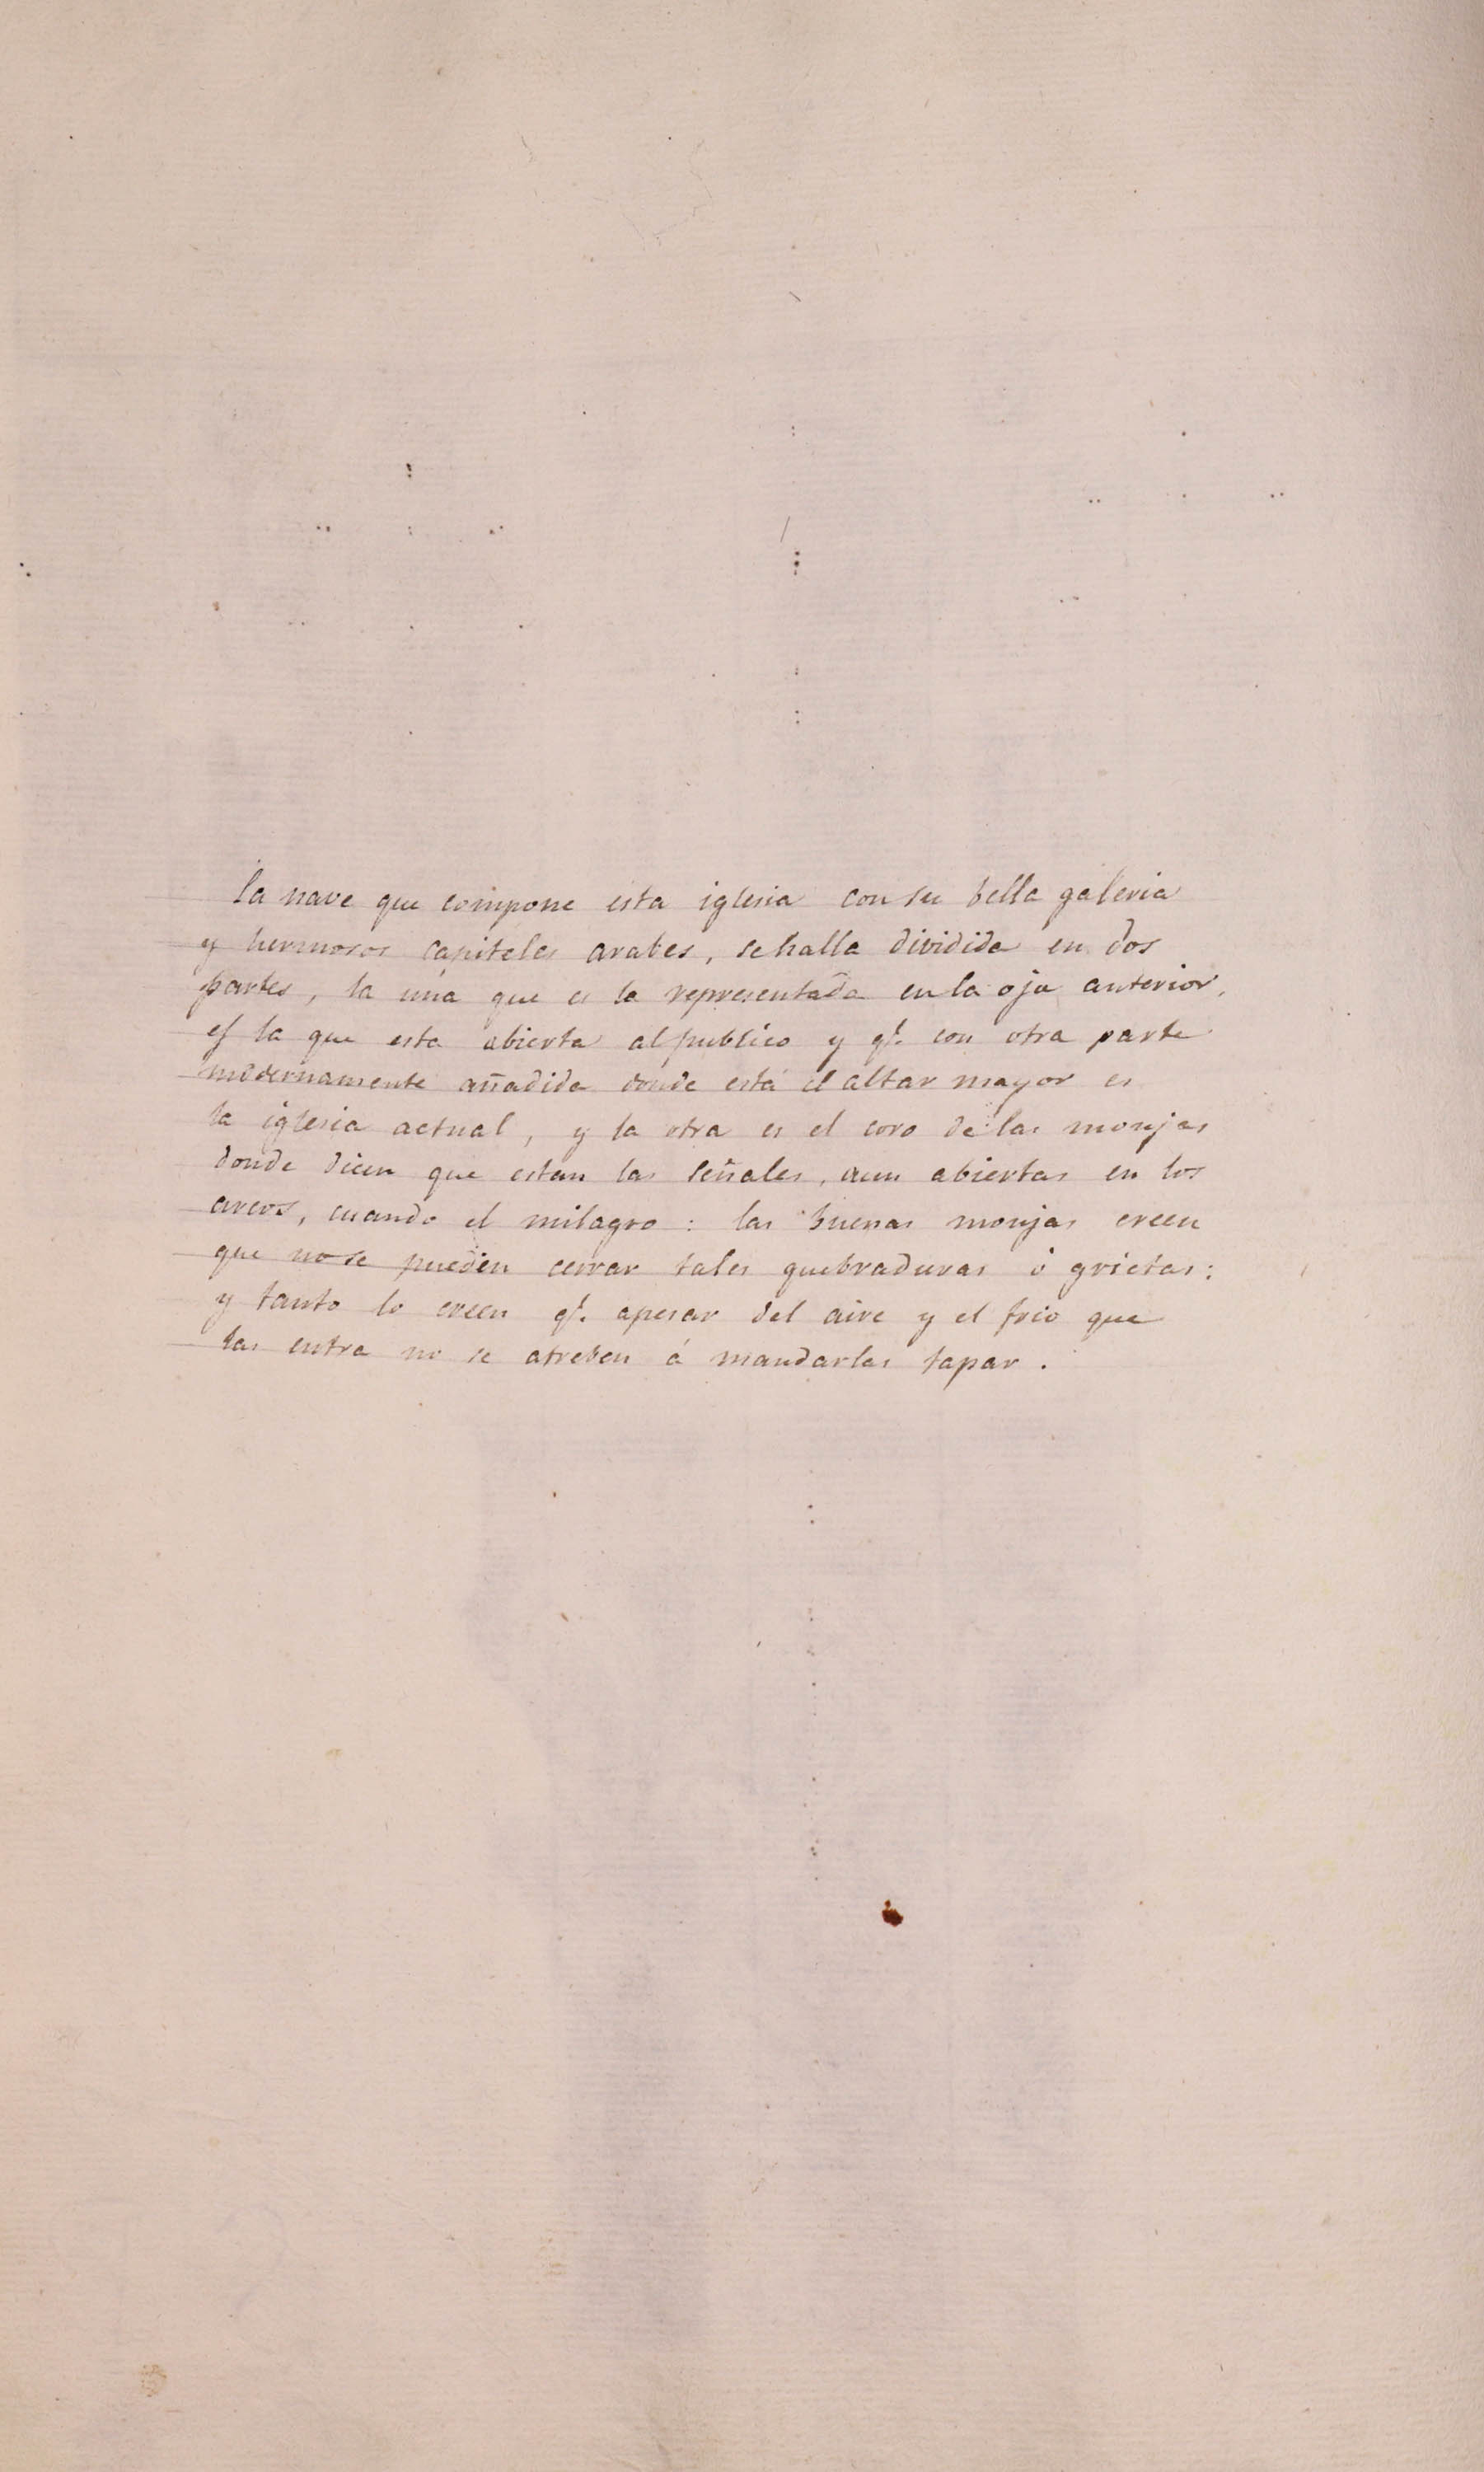 la nave que compone esta iglesia con su bella galeria
y hermosos capiteles arabes, se halla dividida en dos
partes, la una que es la representada en la oja anterior,
es la que esta abierta al publico y qe. con otra parte
modernamente añadida donde está el altar mayor es
la iglesia actual, y la otra es el coro de las monjas
donde dicen que estan las señales, aun abiertas en los
arcos, cuando el milagro: las buenas monjas creen
que no se pueden cerrar tales quebraduras ó grietas:
y tanto lo creen qe. apesar del aire y el frio que
las entra no se atreben á mandarlas tapar.